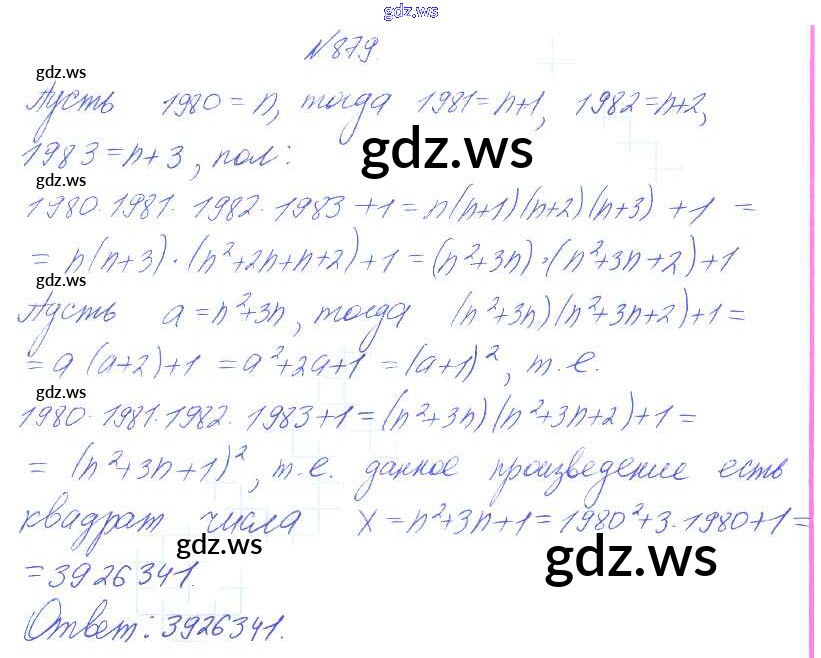 gdz.ws
№879.
gdz.ws
Пусть 1980=n, тогда 1981=n+1, 1982=n+2,
1983=n+3, пол:
gdz.ws
gdz.ws
1980·1981·1982·1983+1=n(n+1)(n+2)(n+3)+1=
=n(n+3)·(n²+2n+n+2)+1=(n²+3n)·(n²+3n+2)+1
gdz.ws
Пусть a=n²+3n, тогда (n²+3n)(n²+3n+2)+1=
=a(a+2)+1=a²+2a+1=(a+1)², т.е.
gdz.ws
1980·1981·1982·1983+1=(n²+3n)(n²+3n+2)+1=
=(n²+3n+1)², т.е. данное произведение есть
квадрат числа x=n²+3n+1=1980²+3·1980+1=
gdz.ws
gdz.ws
=3926341.
Ответ: 3926341.